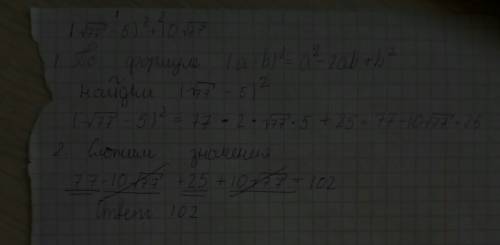 (√77 - 5)² + 10√77
1. По формуле (a-b)² = a² - 2ab + b²
найдем (√77 - 5)²
(√77 - 5)² = 77 - 2 · √77 · 5 + 25 = 77 - 10√77 + 25
2. Сложим значения
77 - 10√77 + 25 + 10√77 = 102
Ответ 102